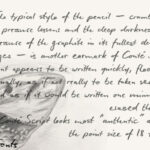 the typical style of the pencil —
pressure lessens and the deep darkness
because of the graphite in its fullest de
ges — is another earmark of Conté
nt appears to be written quickly, flo
not really to be taken se
as if it would be written one minu
erased th
Conté Script looks most "authentic" a
the point size of 18